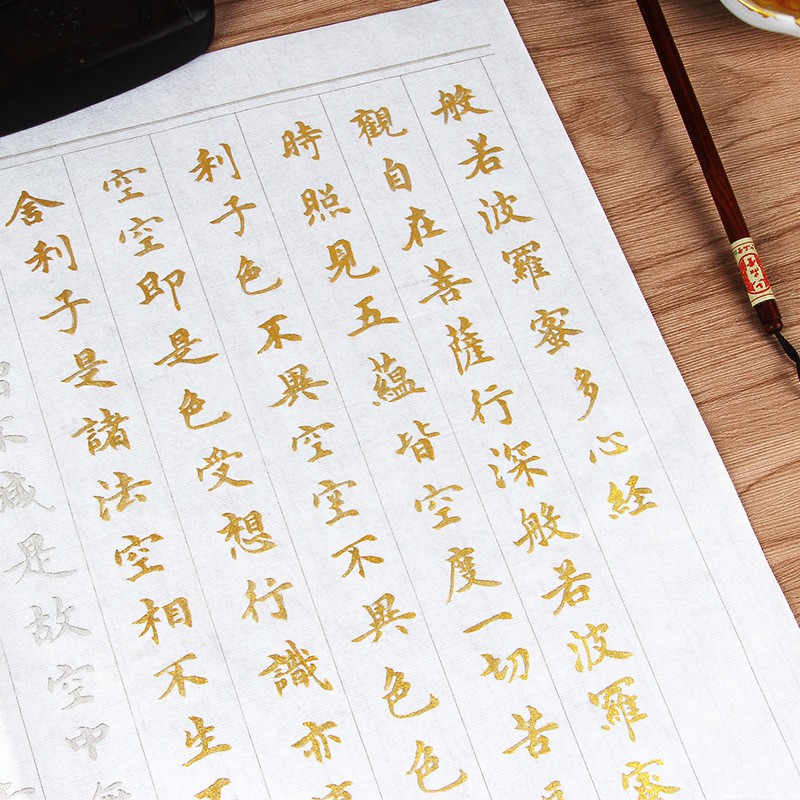 般若波羅蜜多心経
觀自在菩薩行深般若波羅蜜
時照見五蘊皆空度一切苦
利子色不異空空不異色色
空空即是色受想行識亦
舍利子是諸法空相不生不
不減是故空中